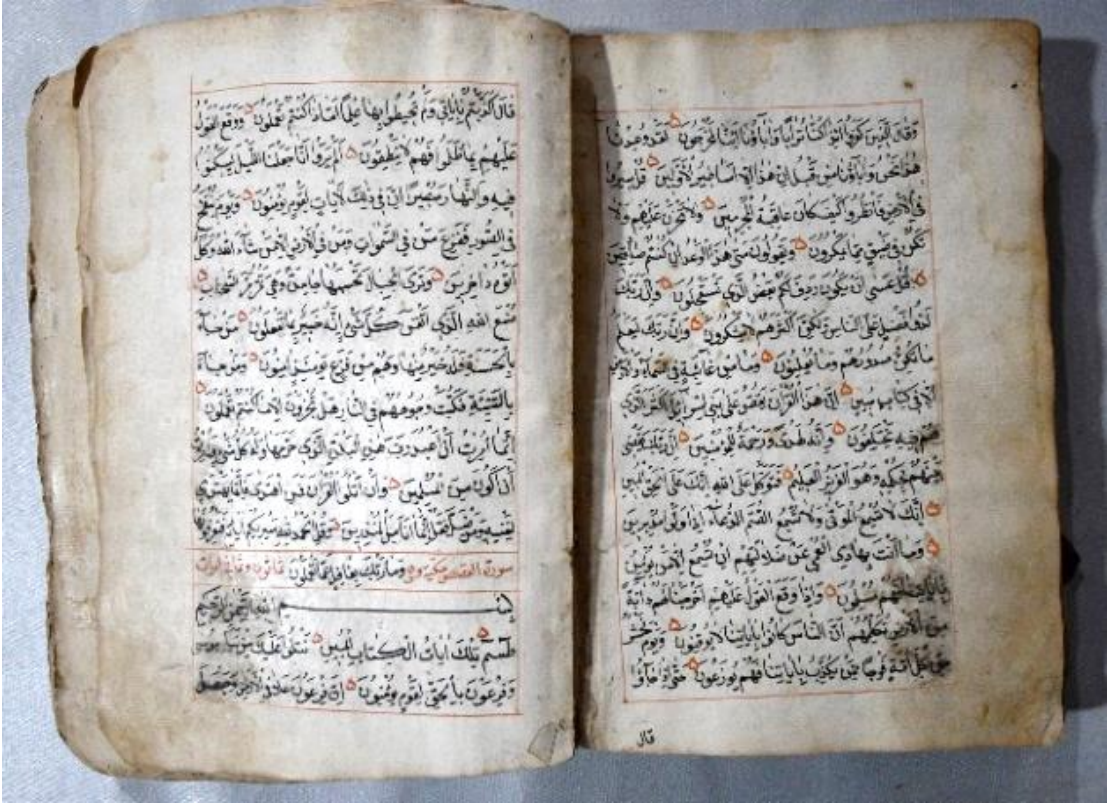 وقال الذين كفروا ائذا كنا ترابا واباؤنا ائنا لمخرجون لقد وعدنا
هذا نحن واباؤنا من قبل ان هذا الا اساطير الاولين قل سيروا
فى الارض فانظروا كيف كان عاقبة المجرمين ولا تحزن عليهم ولا
تكن فى ضيق مما يمكرون ويقولون متى هذا الوعد ان كنتم صادقين
قل عسى ان يكون ردف لكم بعض الذى تستعجلون وان ربك
لذو فضل على الناس ولكن اكثرهم لا يشكرون وان ربك ليعلم
ما تكن صدورهم وما يعلنون وما من غائبة فى السماء والارض
الا فى كتاب مبين ان هذا القرآن يقص على بنى اسرائيل اكثر الذى
هم فيه يختلفون وانه لهدى ورحمة للمؤمنين ان ربك يقضى
بينهم بحكمه وهو العزيز العليم فتوكل على الله انك على الحق المبين
انك لا تسمع الموتى ولا تسمع الصم الدعاء اذا ولوا مدبرين
وما انت بهادى العمى عن ضلالتهم ان تسمع الا من يؤمن
باياتنا فهم مسلمون واذا وقع القول عليهم اخرجنا لهم دابة
من الارض تكلمهم ان الناس كانوا باياتنا لا يوقنون ويوم نحشر
من كل امة فوجا ممن يكذب باياتنا فهم يوزعون حتى اذا جاؤا
قال
قال اكذبتم باياتى ولم تحيطوا بها علما اماذا كنتم تعملون ووقع القول
عليهم بما ظلموا فهم لا ينطقون الم يروا انا جعلنا الليل ليسكنوا
فيه والنهار مبصرا ان فى ذلك لايات لقوم يؤمنون ويوم ينفخ
فى الصور ففزع من فى السموات ومن فى الارض الا من شاء الله وكل
اتوه داخرين وترى الجبال تحسبها جامدة وهى تمر مر السحاب
صنع الله الذى اتقن كل شئ انه خبير بما تفعلون من جاء
بالحسنة فله خير منها وهم من فزع يومئذ امنون ومن جاء
بالسيئة فكبت وجوههم فى النار هل تجزون الا ما كنتم تعملون
انما امرت ان اعبد رب هذه البلدة الذى حرمها وله كل شئ وامرت
ان اكون من المسلمين وان اتلو القرآن فمن اهتدى فانما يهتدى
لنفسه ومن ضل فقل انما انا من المنذرين وقل الحمد لله سيريكم اياته فتعرفونها
سورة القصص مكية وهى وما ربك بغافل عما تعملون ثمانون وثمانية ايات
بسم الله الرحمن الرحيم
طسم تلك ايات الكتاب المبين نتلو عليك من نبأ موسى
وفرعون بالحق لقوم يؤمنون ان فرعون علا فى الارض وجعل